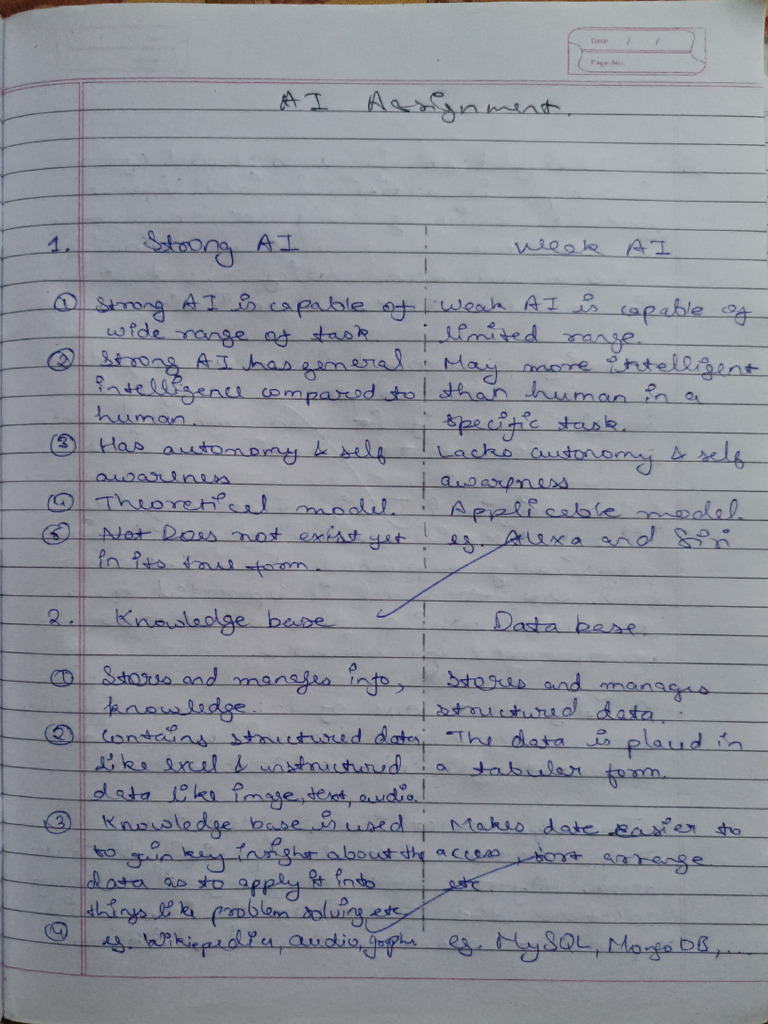 Date / /
Page No.
AI Assignment.
1. Strong AI Weak AI
① Strong AI is capable of Weak AI is capable of
wide range of task limited range.
② Strong AI has general May more intelligent
intelligence compared to than human in a
human. specific task.
③ Has autonomy & self Lacks autonomy & self
awareness awareness
④ Theoretical model. Applicable model.
⑤ Not Does not exist yet eg. Alexa and Siri
in its true form.
2. Knowledge base Data base.
① Stores and manages info, Stores and manages
knowledge. structured data.
② Contains structured data, The data is placed in
like excel & unstructured a tabular form.
data like image, text, audio.
③ Knowledge base is used Makes date easier to
to gain key insight about the access, sort arrange
data as to apply it into etc.
things like problem solving etc
④ eg. Wikipedia, audio, graphs eg. MySQL, MongoDB, ...